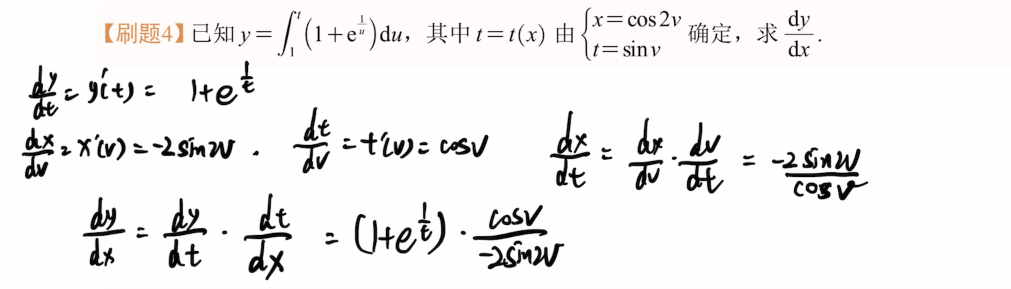 【刷题4】已知 y=∫₁ᵗ(1+e^{1/u})du, 其中 t=t(x) 由 {x=cos2v, t=sinv 确定, 求 dy/dx.
dy/dt = y'(t) = 1+e^{1/t}
dx/dv = x'(v) = -2sin2v . dt/dv = t'(v) = cosv dx/dt = dx/dv · dv/dt = -2sin2v/cosv
dy/dx = dy/dt · dt/dx = (1+e^{1/t}) · cosv/-2sin2v